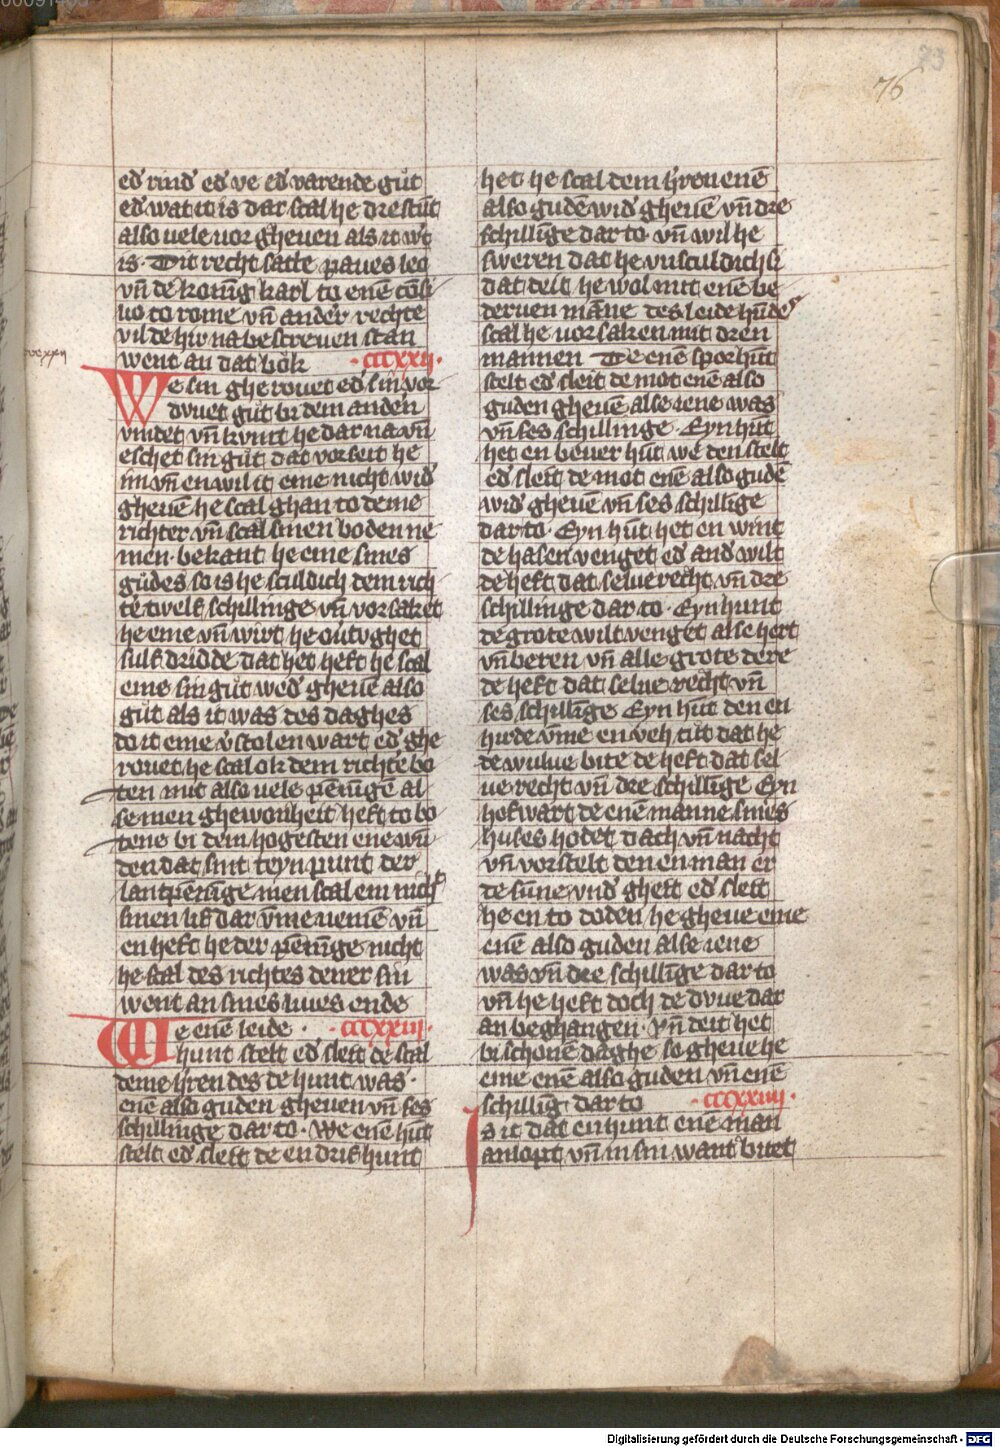 73
76
ed' rind ed' ve ed' varende gůt
ed' wat it is dar scal he dre stūt
also vele vor gheven als it w't
is. Dit recht satte paves leo
vn̄ de konīg karl to enē cōsi
lio to rome vn̄ ander rechte
vil de hir na bescreven stan
went an dat bůk .cccxxij.
We sin gherovet ed' sin vor
duuet gůt bi dem anden
vindet vn̄ kumt he dar na vn̄
eschet sin gůt dat vorseit he
im vn̄ en wil it eme nicht wid'
ghevē he scal ghan to deme
richter vn̄ scal sinen boden ne
men. bekant he eme sines
gůdes so is he sculdich dem rich
te twelf schillinge vn̄ vorsaket
he eme vn̄ wirt he ovtoghet
sulf dridde dat het heft he scal
eme sin gůt wed' ghevē also
gůt als it was des daghes
do it eme v'stolen wart ed' ghe
rovet he scal ok dem richtē bo
ten mit also vele pēnīgē al
se men ghewonheit heft to bo
tene bi dem hogesten ene wū
den dat sint teyn punt der
lantpēnīge men scal em nicht
sinen lif dar v̄me nemē vn̄
en heft he der pēnīge nicht
he scal des richtes dener sin
went an sines lives ende
We enē leide .cccxxiij.
hunt stelt ed' sleit de scal
deme h'ren des de hunt was.
enē also guden gheven vn̄ ses
schillinge dar to. We enē hūt
stelt ed' sleit de en drifhunt
het he scal dem h'ren enē
also gudē wid' ghevē vn̄ dre
schillīge dar to vn̄ wil he
sweren dat he vnsculdich si
dat deit he wol mit enē be
derven māne des leidehūdes
scal he vorsaken mit dren
mannen We enē sporhūt
stelt ed' sleit de mot enē also
guden ghevē alse iene was
vn̄ ses schillinge. Eyn hūt
het en bever hūt we den stelt
ed' sleit de mot enē also gudē
wid' ghevē vn̄ ses schillīge
dar to. Eyn hūt het en wint
de hasen venget ed' and' wilt
de heft dat selve recht vn̄ dre
schillinge dar to. Eyn hunt
de grote wilt venget alse hert
vn̄ beren vn̄ alle grote dere
de heft dat selve recht vn̄
ses schillīge Eyn hūt den en
hirde v̄me en veh tůt dat he
de wulve bite de heft dat sel
ve recht vn̄ dre schillīge Eyn
hofwart de enē manne sines
huses hodet dach vn̄ nacht
vn̄ vorstelt den en man er
de sūne vnd' gheit ed' sleit
he en to doden he gheve eme
enē also guden alse iene
was vn̄ dre schillīge dar to
vn̄ he heft doch de duve dar
an beghangen. Vn̄ deit het
bi schonē daghe so gheve he
eme enē also guden vn̄ enē
schillīg dar to .cccxxiiij.
Is it dat en hunt enē man
anlopt vn̄ in sin want bitet
Digitalisierung gefördert durch die Deutsche Forschungsgemeinschaft - DFG